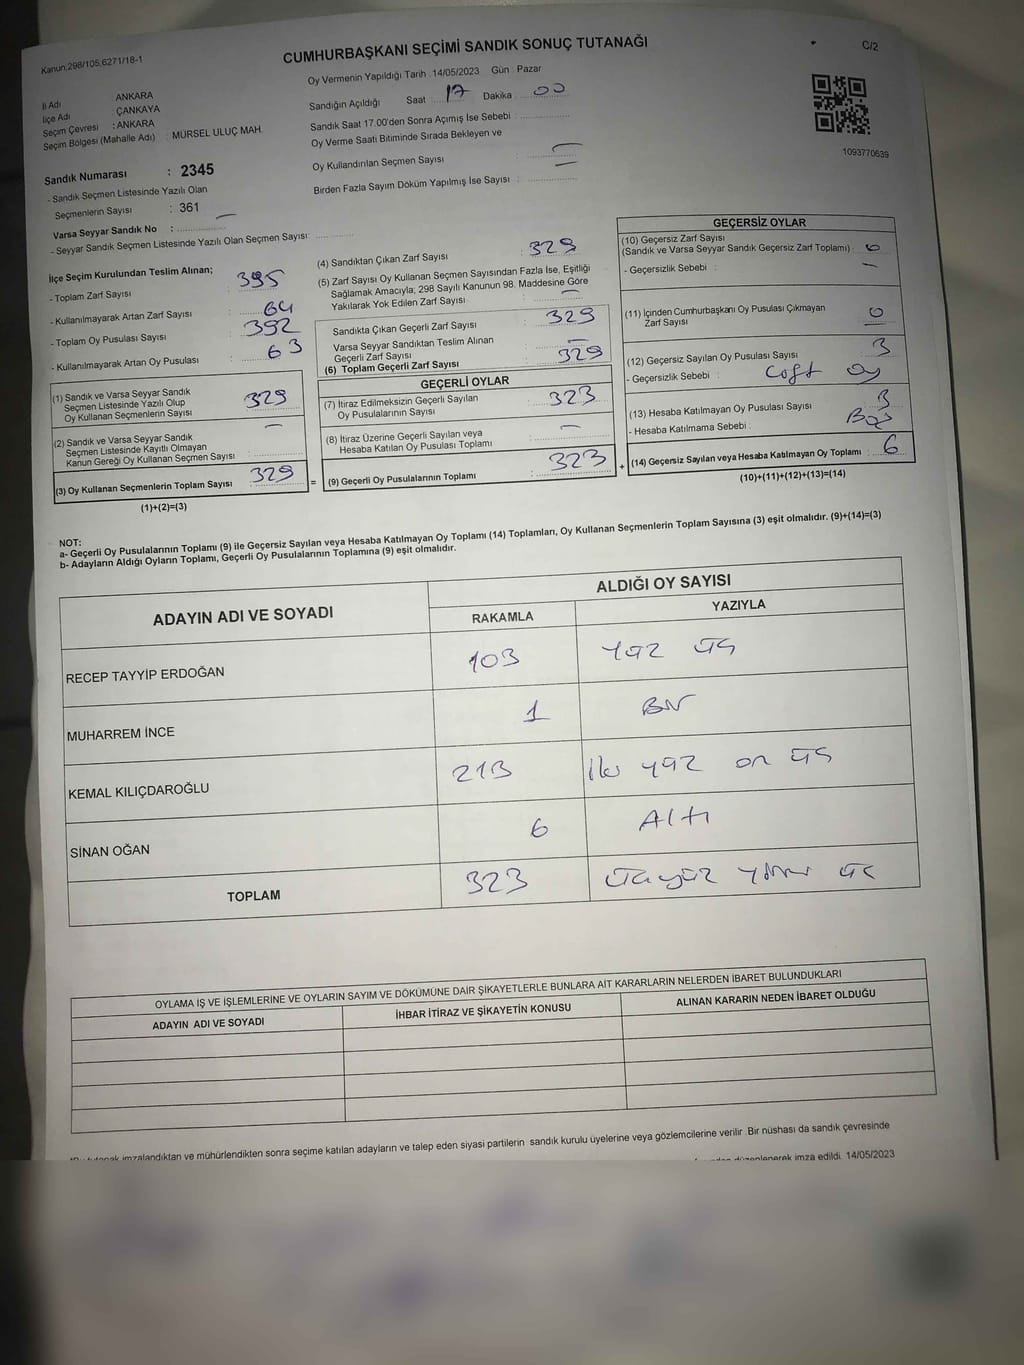 Kanun.298/105,6271/18-1
CUMHURBAŞKANI SEÇİMİ SANDIK SONUÇ TUTANAĞI
C/2
Oy Vermenin Yapıldığı Tarih : 14/05/2023 Gün : Pazar
İl Adı ANKARA
İlçe Adı ÇANKAYA
Seçim Çevresi : ANKARA
Seçim Bölgesi (Mahalle Adı) : MÜRSEL ULUÇ MAH.
Sandığın Açıldığı Saat 17 Dakika 00
Sandık Saat 17.00'den Sonra Açımış İse Sebebi :
Oy Verme Saati Bitiminde Sırada Bekleyen ve
Oy Kullandırılan Seçmen Sayısı : —
Birden Fazla Sayım Döküm Yapılmış İse Sayısı : —
1093770639
Sandık Numarası : 2345
- Sandık Seçmen Listesinde Yazılı Olan
Seçmenlerin Sayısı : 361
Varsa Seyyar Sandık No : —
- Seyyar Sandık Seçmen Listesinde Yazılı Olan Seçmen Sayısı:
İlçe Seçim Kurulundan Teslim Alınan;
- Toplam Zarf Sayısı : 395
- Kullanılmayarak Artan Zarf Sayısı : 64
- Toplam Oy Pusulası Sayısı : 392
- Kullanılmayarak Artan Oy Pusulası : 63
(1) Sandık ve Varsa Seyyar Sandık
Seçmen Listesinde Yazılı Olup
Oy Kullanan Seçmenlerin Sayısı : 329
(2) Sandık ve Varsa Seyyar Sandık
Seçmen Listesinde Kayıtlı Olmayan
Kanun Gereği Oy Kullanan Seçmen Sayısı : —
(3) Oy Kullanan Seçmenlerin Toplam Sayısı : 329
(1)+(2)=(3)
(4) Sandıktan Çıkan Zarf Sayısı : 329
(5) Zarf Sayısı Oy Kullanan Seçmen Sayısından Fazla İse, Eşitliği
Sağlamak Amacıyla; 298 Sayılı Kanunun 98. Maddesine Göre
Yakılarak Yok Edilen Zarf Sayısı : —
Sandıkta Çıkan Geçerli Zarf Sayısı : 329
Varsa Seyyar Sandıktan Teslim Alınan
Geçerli Zarf Sayısı : —
(6) Toplam Geçerli Zarf Sayısı : 329
GEÇERLİ OYLAR
(7) İtiraz Edilmeksizin Geçerli Sayılan
Oy Pusulalarının Sayısı : 323
(8) İtiraz Üzerine Geçerli Sayılan veya
Hesaba Katılan Oy Pusulası Toplamı : —
= (9) Geçerli Oy Pusulalarının Toplamı : 323 +
GEÇERSİZ OYLAR
(10) Geçersiz Zarf Sayısı
(Sandık ve Varsa Seyyar Sandık Geçersiz Zarf Toplamı) : 0
- Geçersizlik Sebebi : —
(11) İçinden Cumhurbaşkanı Oy Pusulası Çıkmayan
Zarf Sayısı : 0
(12) Geçersiz Sayılan Oy Pusulası Sayısı : 3
- Geçersizlik Sebebi : Çift oy
(13) Hesaba Katılmayan Oy Pusulası Sayısı : 3
- Hesaba Katılmama Sebebi : Boş
(14) Geçersiz Sayılan veya Hesaba Katılmayan Oy Toplamı : 6
(10)+(11)+(12)+(13)=(14)
NOT:
a- Geçerli Oy Pusulalarının Toplamı (9) ile Geçersiz Sayılan veya Hesaba Katılmayan Oy Toplamı (14) Toplamları, Oy Kullanan Seçmenlerin Toplam Sayısına (3) eşit olmalıdır. (9)+(14)=(3)
b- Adayların Aldığı Oyların Toplamı, Geçerli Oy Pusulalarının Toplamına (9) eşit olmalıdır.
ADAYIN ADI VE SOYADI ALDIĞI OY SAYISI
RAKAMLA YAZIYLA
RECEP TAYYİP ERDOĞAN 103 Yüz üç
MUHARREM İNCE 1 Bir
KEMAL KILIÇDAROĞLU 213 iki yüz on üç
SİNAN OĞAN 6 Altı
TOPLAM 323 üçyüz yirmi üç
OYLAMA İŞ VE İŞLEMLERİNE VE OYLARIN SAYIM VE DÖKÜMÜNE DAİR ŞİKAYETLERLE BUNLARA AİT KARARLARIN NELERDEN İBARET BULUNDUKLARI
ADAYIN ADI VE SOYADI İHBAR İTİRAZ VE ŞİKAYETİN KONUSU ALINAN KARARIN NEDEN İBARET OLDUĞU
imzalandıktan ve mühürlendikten sonra seçime katılan adayların ve talep eden siyasi partilerin sandık kurulu üyelerine veya gözlemcilerine verilir. Bir nüshası da sandık çevresinde
düzenlenerek imza edildi. 14/05/2023